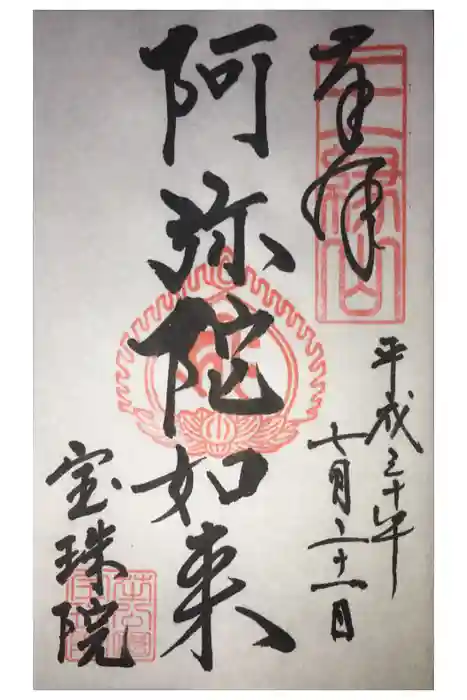 奉拝
三縁山
平成三十年
七月二十一日
阿弥陀如来
宝珠院